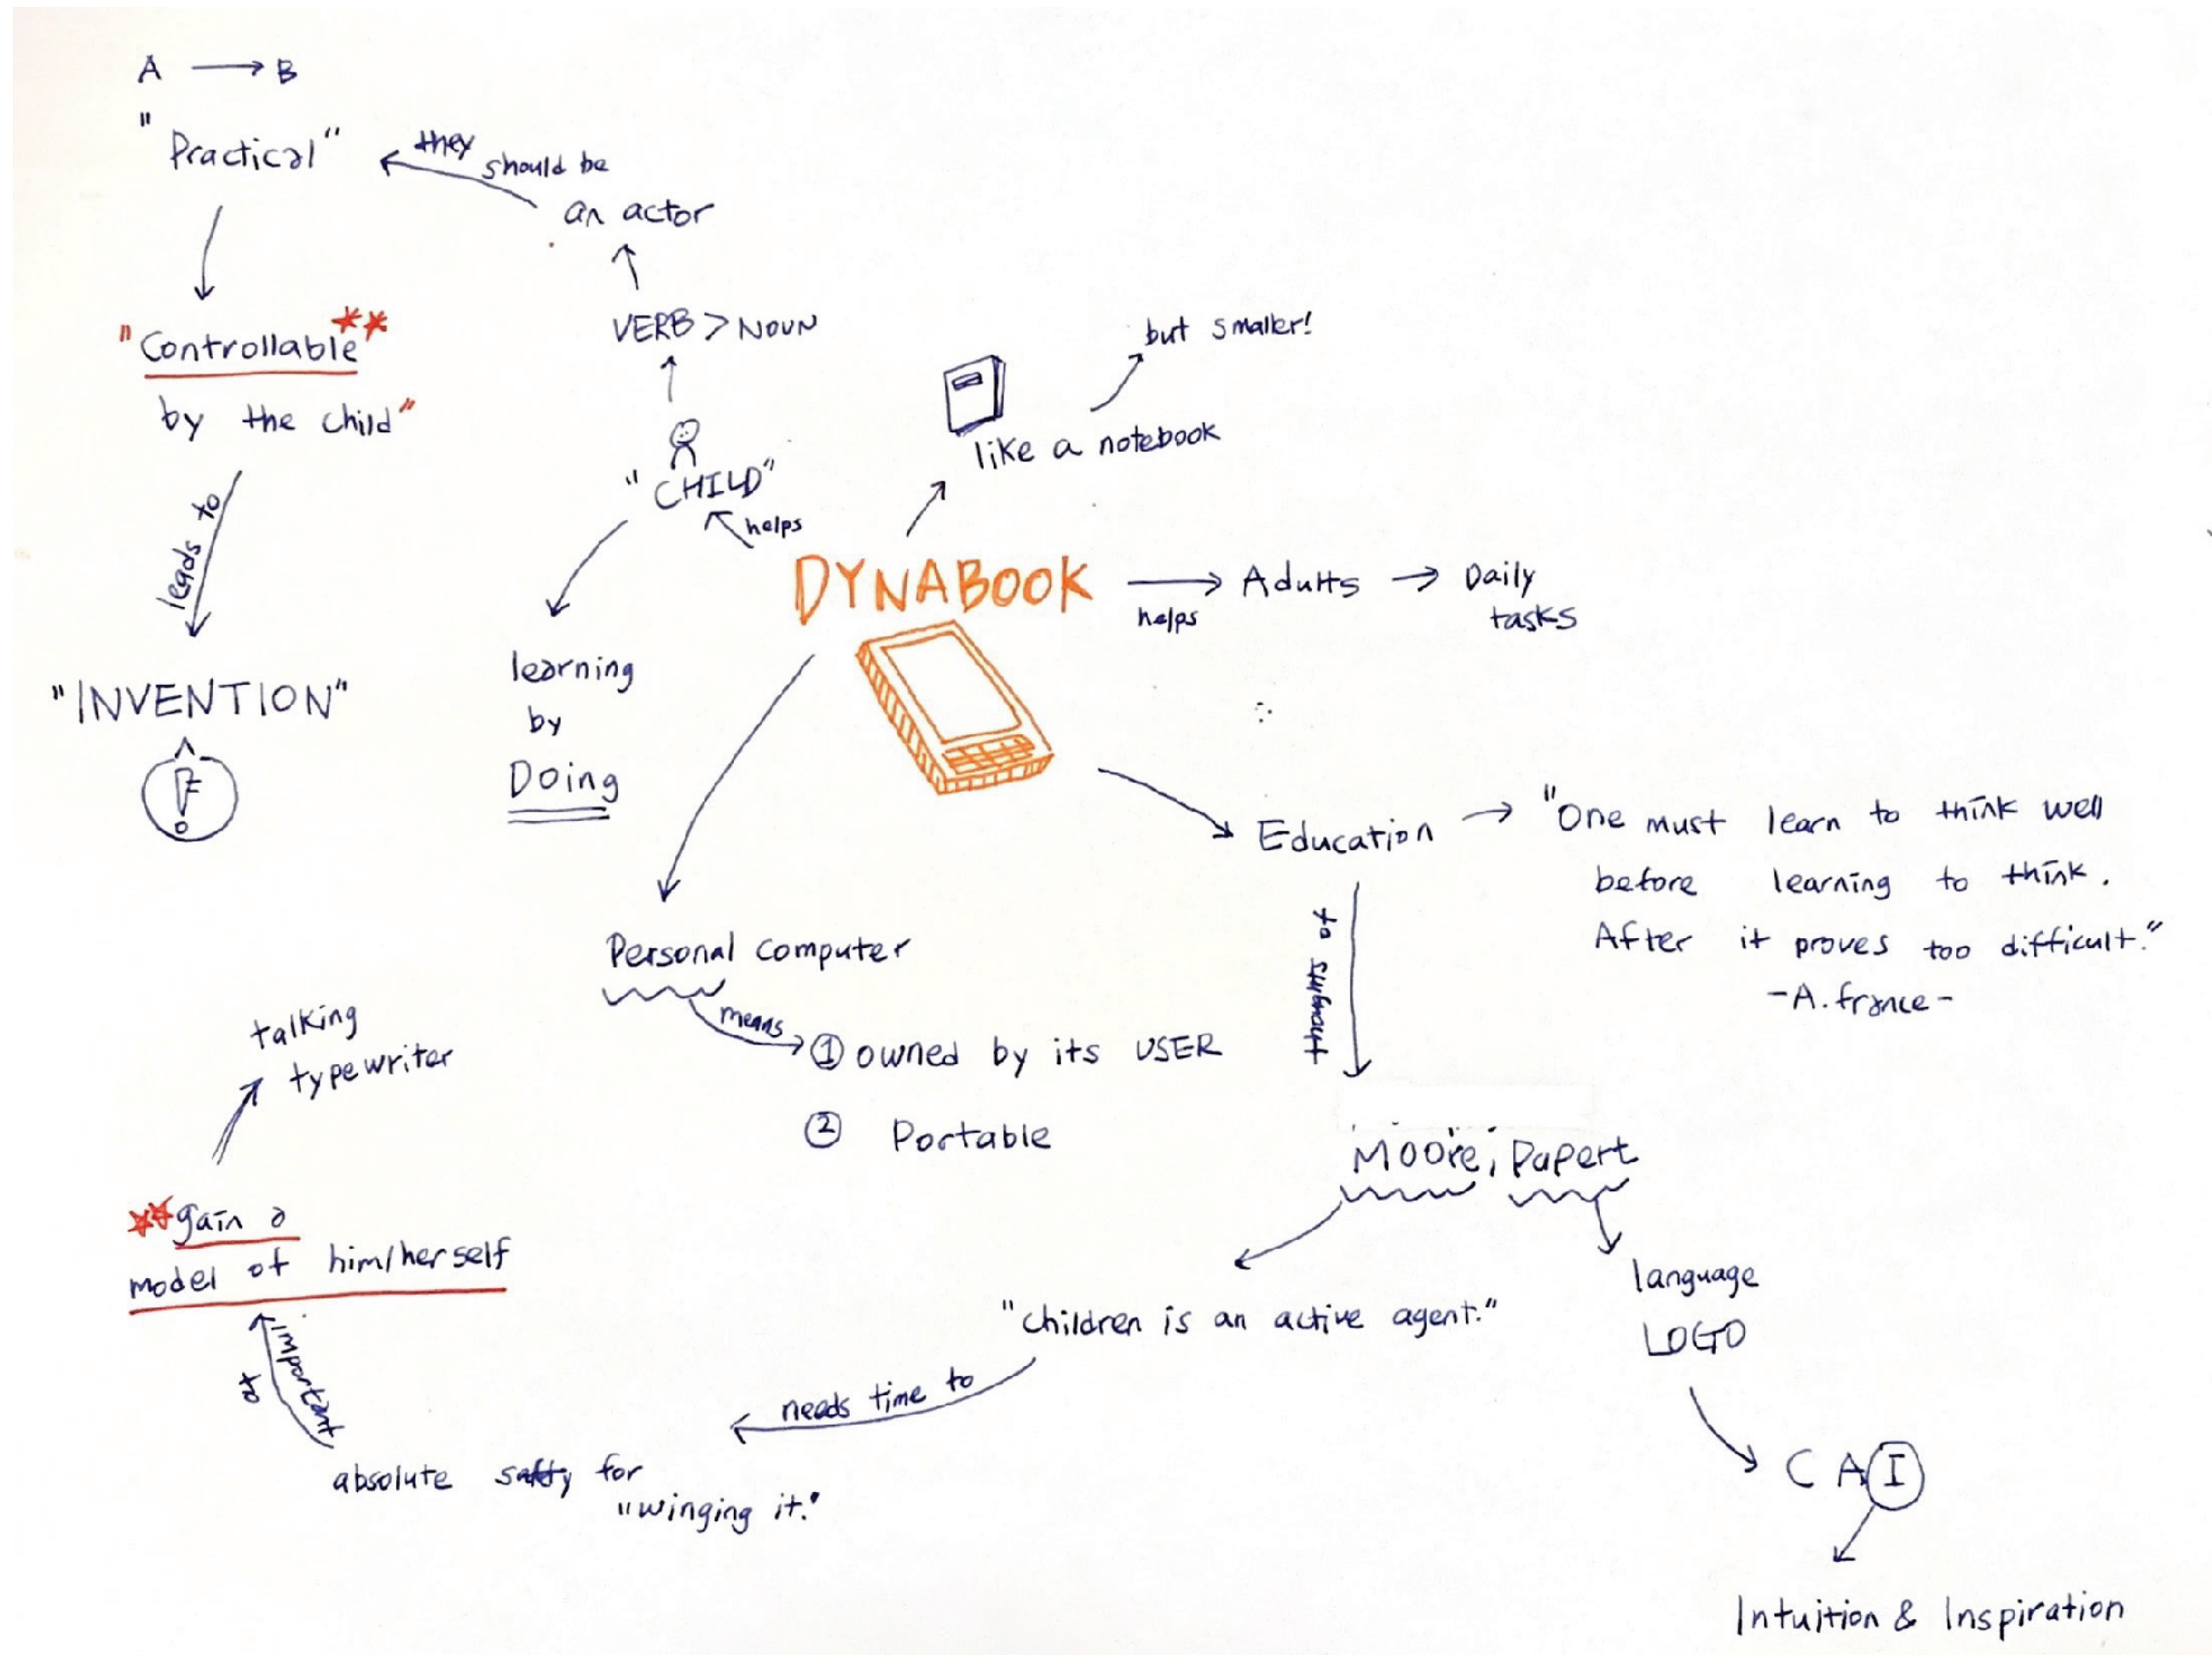 A → B
"Practical"
they should be
an actor
VERB > NOUN
"Controllable**
by the child"
leads to
"INVENTION"
"CHILD"
helps
learning
by
Doing
but smaller!
like a notebook
DYNABOOK
helps
Adults → Daily
tasks
Education → "One must learn to think well
before learning to think.
After it proves too difficult."
-A. france-
thoughts to
Personal computer
means
① owned by its USER
② Portable
Moore, Papert
language
LOGO
C A I
Intuition & Inspiration
"children is an active agent."
needs time to
absolute safty for
"winging it."
important to
**gain a
model of him/herself
talking
typewriter